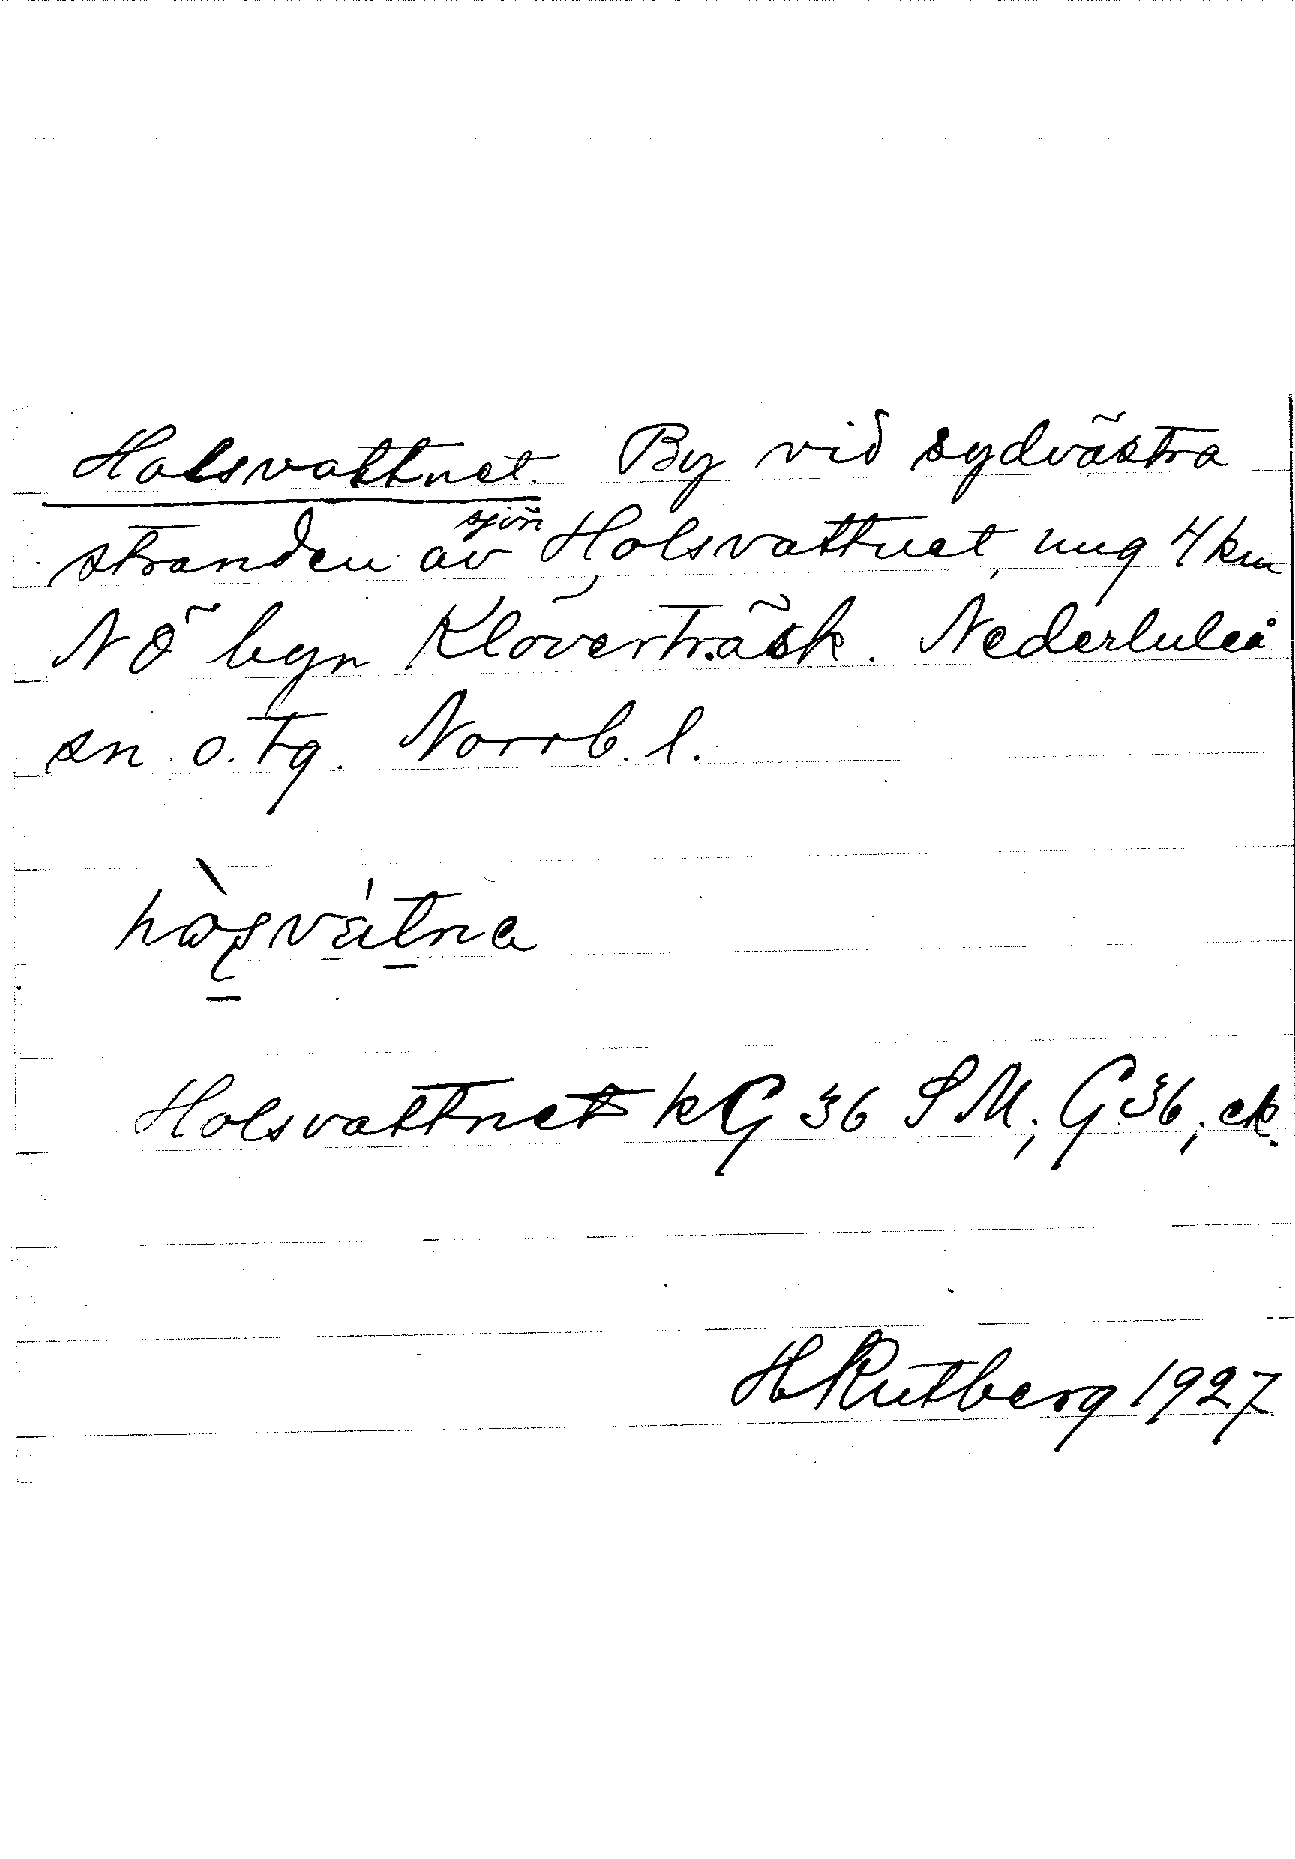 Holsvattnet. By vid sydvästra
stranden av sjön Holsvattnet, ung 4 km
NÖ byn Klöverträsk. Nederluleå
sn o. tg. Norrb. l.
Holsvattnet kG 36 SM; G 36; ek.
H Rutberg 1927